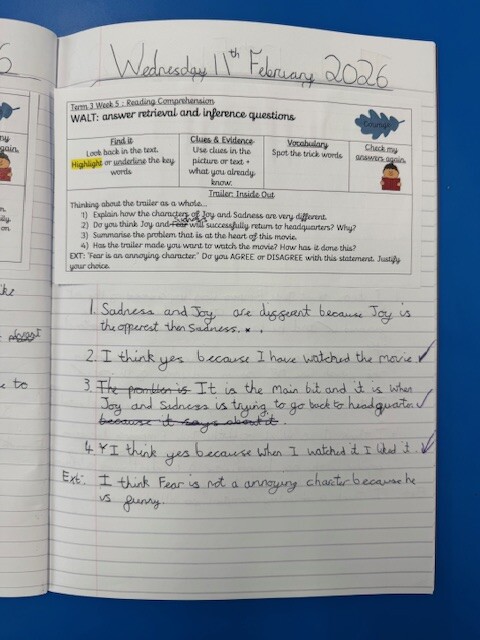 Wednesday 11th February 2026
Term 3 Week 5 : Reading Comprehension
WALT: answer retrieval and inference questions
Courage
Find it
Look back in the text.
Highlight or underline the key
words
Clues & Evidence
Use clues in the
picture or text +
what you already
know.
Vocabulary
Spot the trick words
Check my
answers again.
Trailer: Inside Out
Thinking about the trailer as a whole...
1) Explain how the characters of Joy and Sadness are very different.
2) Do you think Joy and Fear Sadness will successfully return to headquarters? Why?
3) Summarise the problem that is at the heart of this movie.
4) Has the trailer made you want to watch the movie? How has it done this?
EXT: "Fear is an annoying character." Do you AGREE or DISAGREE with this statement. Justify
your choice.
1. Sadness and Joy are different because Joy is
the opperest then Sadness.
2. I think yes because I have watched the movie
3. The promblen is It is the main bit and it is when
Joy and Sadness is trying to go back to headquarter.
because it says about it.
4. Y I think yes because when I watched it I liked it.
Ext: I think Fear is not a annoying charater because he
is funny.